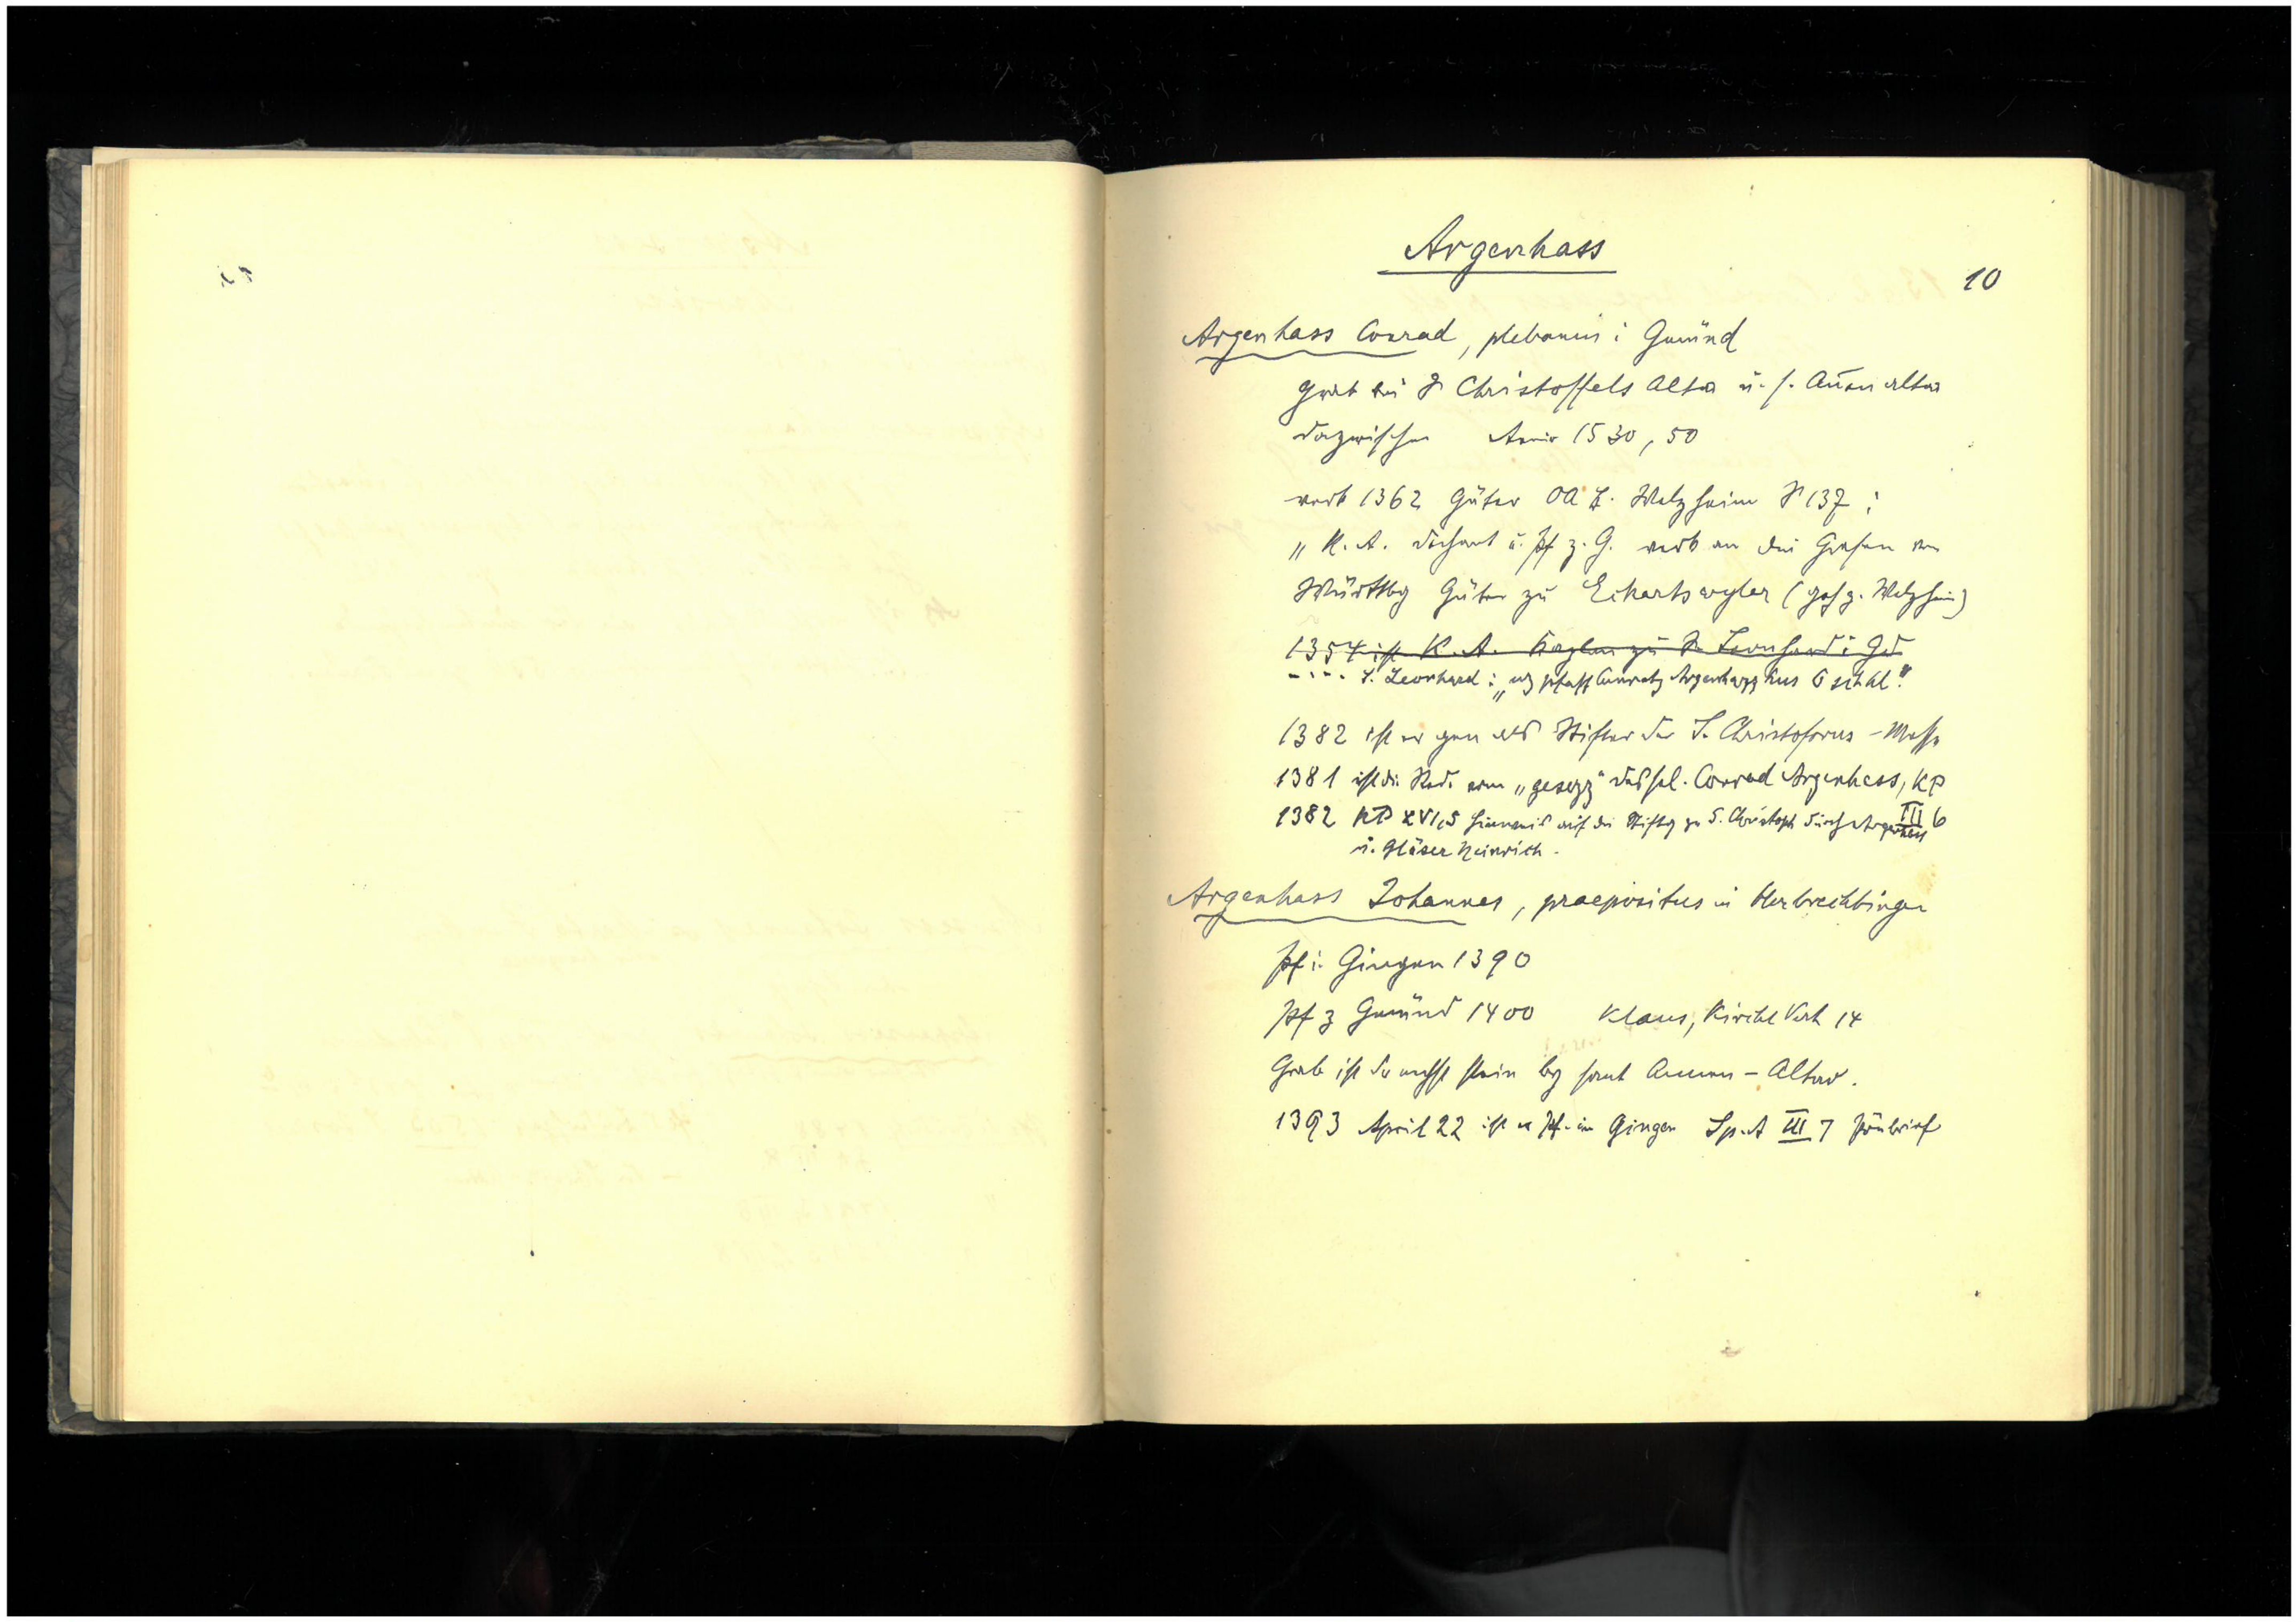 Argenhass
10
Argenhass Conrad, plebanus i Gmünd
grab bei S Christoffels Altar u. s. Annen altar
dazwischen Anniv 1530, 50
verk 1362 Güter OA B. Welzheim S 137 :
„K. A. dechant u. Pf z. G. verk an die Grafen von
Württbg Güter zu Eckartswyler (gesz. Welzheim)
1354 ist K. A. Kaplan zu S. Leonhard i Gd
-.-- S. Leonhard : „uz pfaff Cunratz Argenhazz hus 6 sch hl."
1382 ist er gen als Stifter der S. Christoforus - Messe
1381 ist die Rede vom „gesezz" des sel. Conrad Argenhass, KP III 6
1382 KP XVI,5 Hinweis auf die Stiftg zu S. Christoph durch Argenhass
u. Gläser Heinrich.
Argenhass Johannes, praepositus in Herbrechtingen
Pf i. Gingen 1390
Pf z Gmünd 1400 Klaus, Kirchl Verh 14
Grab ist der nechst stain by sant Annen - Altar.
1393 April 22 ist er Pf. in Gingen Sp.A III 7